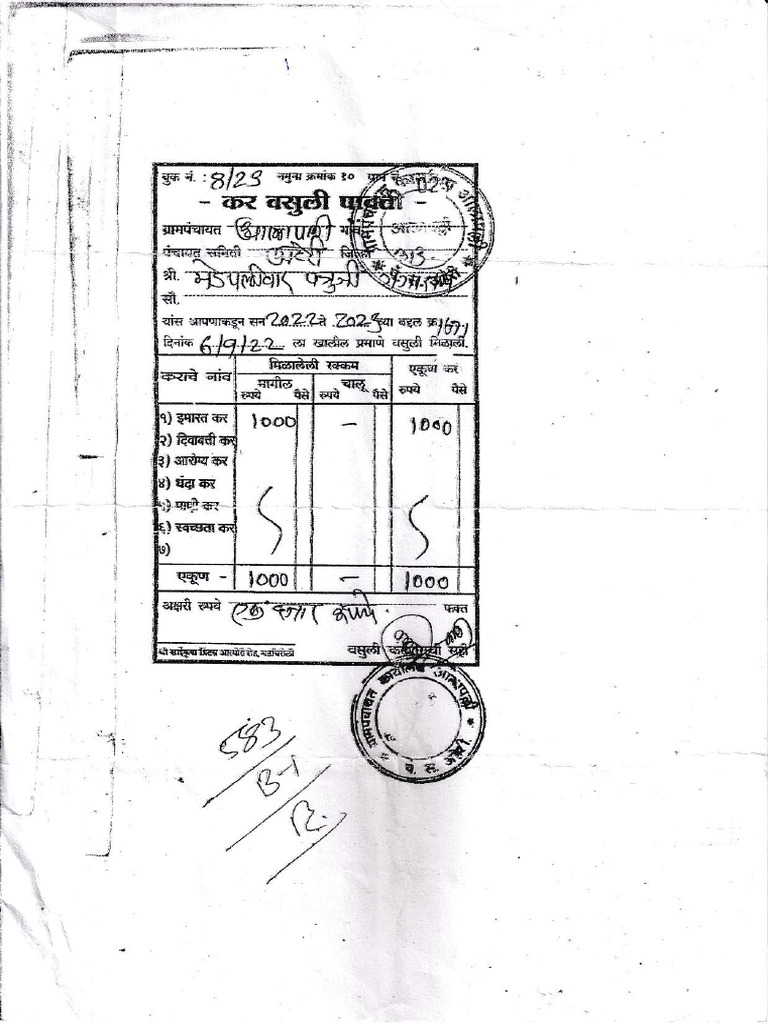 बुक नं. : 8/23 नमुना क्रमांक १० 023
- कर वसुली पावती -
ग्रामपंचायत आलापल्ली गांव आलापल्ली
पंचायत समिती अहेरी जिल्हा
श्री. मेडपलीवार
सौ.
यांस आपणाकडून सन 2022 ते 2023 च्या बद्दल क्र
दिनांक 6/9/22 ला खालील प्रमाणे वसुली मिळाली.
कराचे नांव मिळालेली रक्कम एकूण कर
मागील चालू
रुपये पैसे रुपये पैसे रुपये पैसे
१) इमारत कर 1000 - 1000
२) दिवाबत्ती कर
३) आरोग्य कर
४) धंदा कर
५) पाणी कर
६) स्वच्छता कर
७)
एकूण - 1000 - 1000
अक्षरी रुपये एक हजार रूपये. फक्त
वसुली करणाऱ्याची सही
ग्रामपंचायत कार्यालय आलापल्ली
पं. स. अहेरी
583
B-1